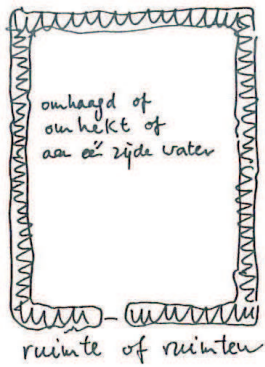 omhaagd of
omhekt of
aan één zijde water
ruimte of ruimten